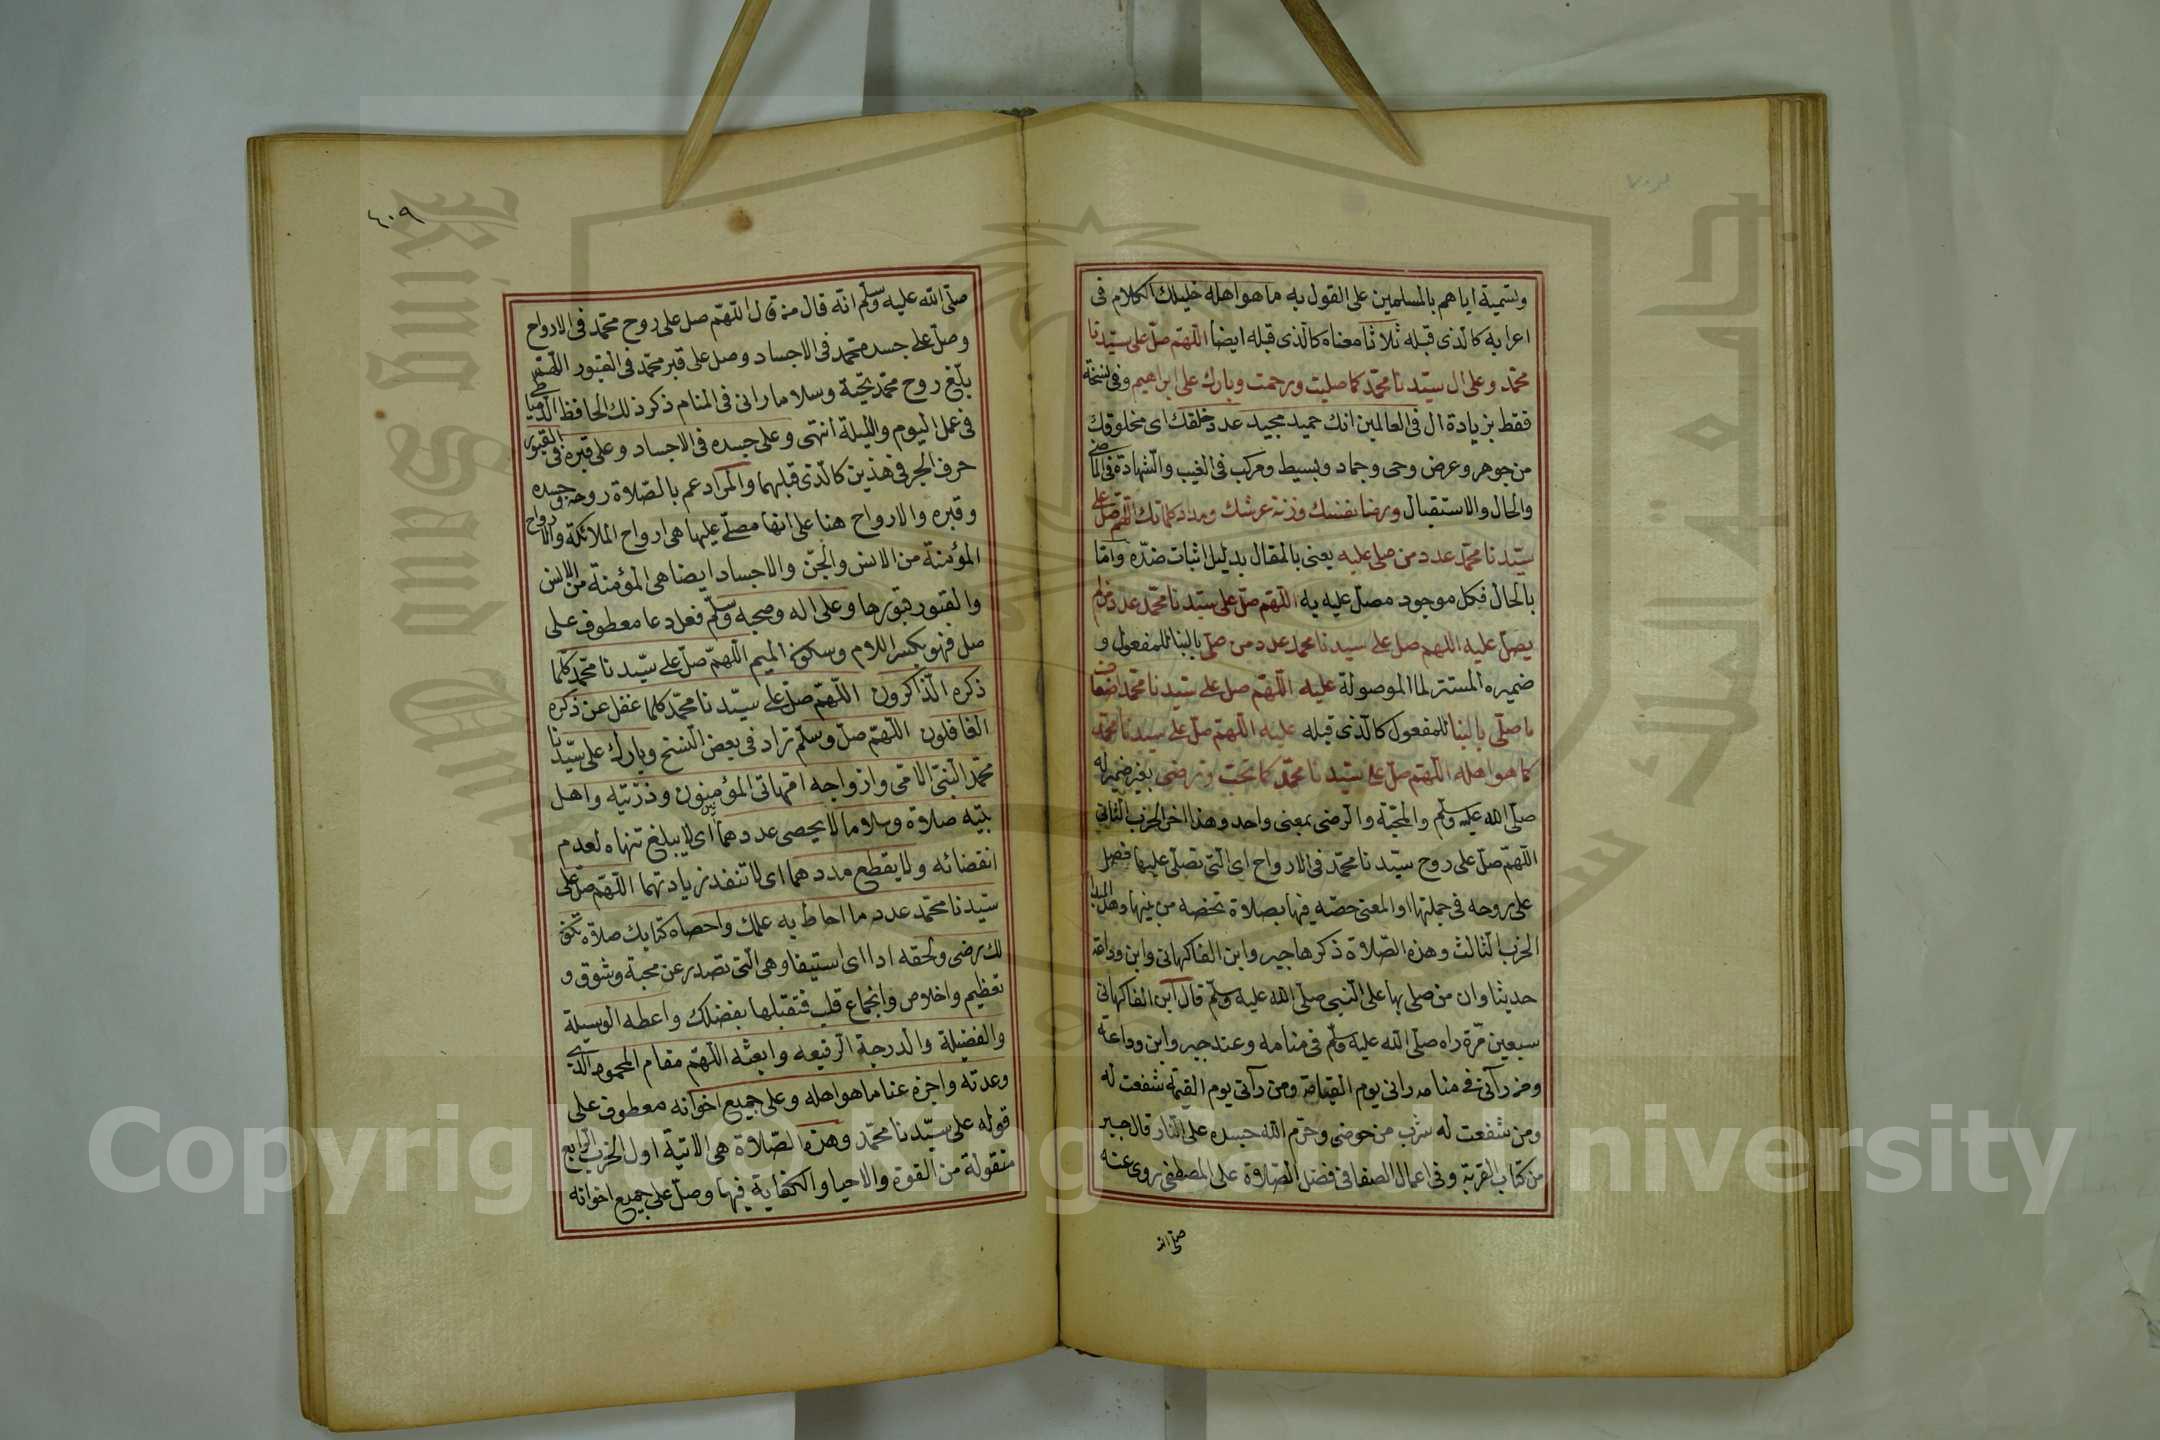 وتسمية اياهم بالمسلمين على القول به ما هو اهله خليلك الكلام فى
اعرابه كالذى قبله ثلاثا معناه كالذى قبله ايضا اللهم صل على سيدنا
محمد وعلى ال سيدنا محمد كما صليت ورحمت وباركت على ابراهيم وفى نسخة
فقط بزيادة ال فى العالمين انك حميد مجيد عدد خلقك اى مخلوقك
من جوهر وعرض وحى وجماد وبسيط ومركب فى الغيب والشهادة فى الماضى
والحال والاستقبال ورضا نفسك وزنة عرشك ومداد كلماتك اللهم صل على
سيدنا محمد عدد من صلى عليه يعنى بالمقال بدليل اثبات ضده واما
بالحال فكل موجود مصل عليه به اللهم صل على سيدنا محمد عدد من لم
يصل عليه اللهم صل على سيدنا محمد عدد من صلى بالبنا للمفعول و
ضميره المستتر لما الموصولة عليه اللهم صل على سيدنا محمد اضعاف
ما صلى بالبنا للمفعول كالذى قبله عليه اللهم صل على سيدنا محمد
كما هو اهله اللهم صل على سيدنا محمد كما تحب وترضى بغير ضمير له
صلى الله عليه وسلم والمحبة والرضى بمعنى واحد وهذا اخر الحزب الثانى
اللهم صل على روح سيدنا محمد فى الارواح اى التى تصلى عليها فصل
على روحه فى جملتها او المعنى خصه فيها بصلاة تخصه من بينها وهل
الحزب الثالث وهذه الصلاة ذكرها جبر وابن الفاكهانى وابن وداعة
حديثا وان من صلى بها على النبى صلى الله عليه وسلم قال ابن الفاكهانى
سبعين مرة راه صلى الله عليه وسلم فى منامه وعند جبر وابن وداعة
ومن رآنى فى منامه رانى يوم القيامة ومن رآنى يوم القيمة شفعت له
ومن شفعت له شرب من حوضى وحرم الله جسده على النار قال جبر
من كتاب القربة وفى اعمال الصفا فى فضل الصلاة على المصطفى روى عنه
صلى الله
٤٠٩
صلى الله عليه وسلم انه قال من قال اللهم صل على روح محمد فى الارواح
وصل على جسد محمد فى الاجساد وصل على قبر محمد فى القبور اللهم
بلغ روح محمد تحية وسلاما رانى فى المنام ذكر ذلك الحافظ الدمياطى
فى عمل اليوم والليلة انتهى وعلى جسده فى الاجساد وعلى قبره فى القبور
حرف الجر فى هذين كالذى قبلهما والمراد عم بالصلاة روحه وجسده
وقبره والارواح هنا على انها مصلى عليها هى ارواح الملائكة والارواح
المؤمنة من الانس والجن والاجساد ايضا هى المؤمنة من الانس
والقبور قبورها وعلى اله وصحبه وسلم فعل دعا معطوف على
صل فهو بكسر اللام وسكون الميم اللهم صل على سيدنا محمد كلما
ذكره الذاكرون اللهم صل على سيدنا محمد كلما غفل عن ذكره
الغافلون اللهم صل وسلم زاد فى بعض النسخ وبارك على سيدنا
محمد النبى الامى وازواجه امهاتى المؤمنون وذريته واهل
بيته صلاة وسلاما لا يحصى عددهما اى لا يبلغ تنهاه لعدم
انقضائه ولا يقطع مددهما اى لا تنفد زيادتهما اللهم صل على
سيدنا محمد عدد ما احاط به علمك واحصاه كتابك صلاة تكون
لك رضى ولحقه ادا اى استيفا وهى التى تصدر عن محبة وشوق و
تعظيم واخلاص وانجماع قلب فتقبلها بفضلك واعطه الوسيلة
والفضيلة والدرجة الرفيعه وابعثه اللهم مقام المحمود الذى
وعدته واجزه عنا ما هو اهله وعلى جميع اخوانه معطوف على
قوله على سيدنا محمد وهذه الصلاة هى الاتية اول الحزب الرابع
منقولة من القوة والاحيا والكفاية فيها وصل على جميع اخوانه
جامعة الملك سعود
King Saud University
Copyright © King Saud University